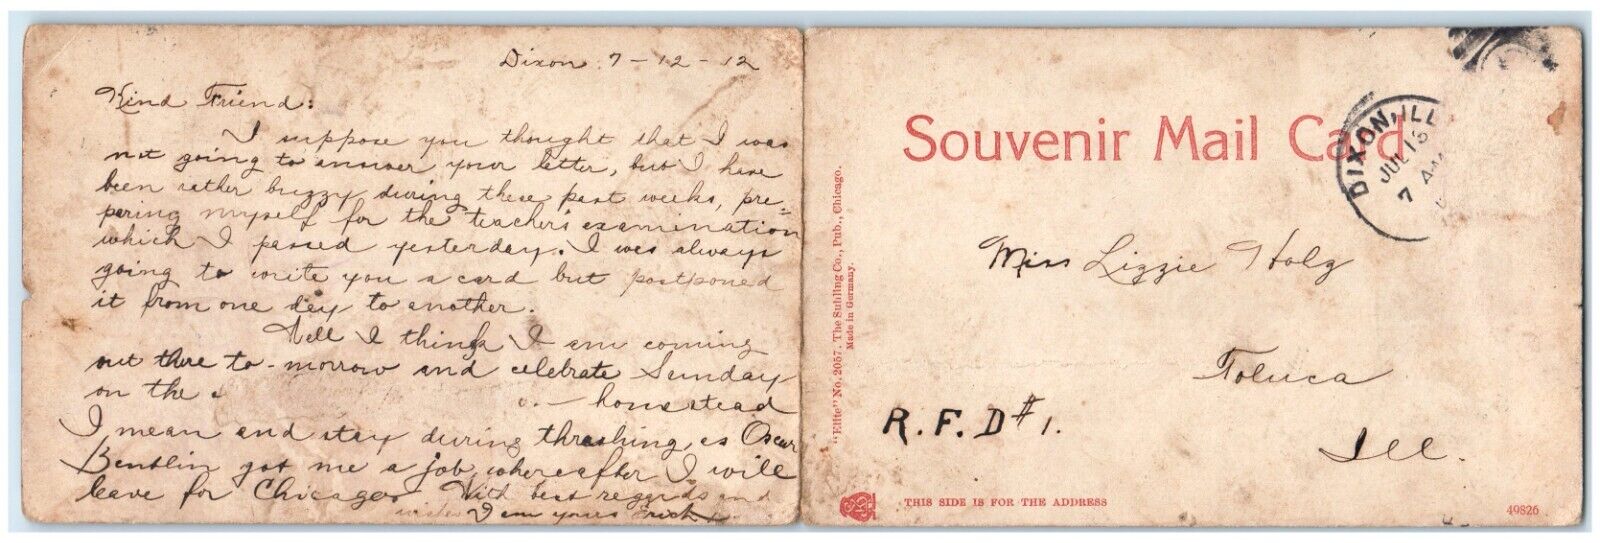 Dixon 7-12-12
Kind Friend:
I suppose you thought that I was
not going to answer your letter, but I have
been rather buzzy during these past weeks, pre=
paring myself for the teacher's examination
which I passed yesterday. I was always
going to write you a card but postponed
it from one day to another.
Well I think I am coming
out there to-morrow and celebrate Sunday
on the homestead
I mean and stay during thrashing, as Oscar
Bentlin got me a job, whereafter I will
leave for Chicago. With best regards and
wishes I am yours Erick
"Elite" No. 2057. The Suhling Co., Pub., Chicago.
Made in Germany.
Souvenir Mail Card
DIXON, ILL
JUL 13
7 AM
Miss Lizzie Holz
Toluca
R.F.D #1.
Ill.
THIS SIDE IS FOR THE ADDRESS
49826